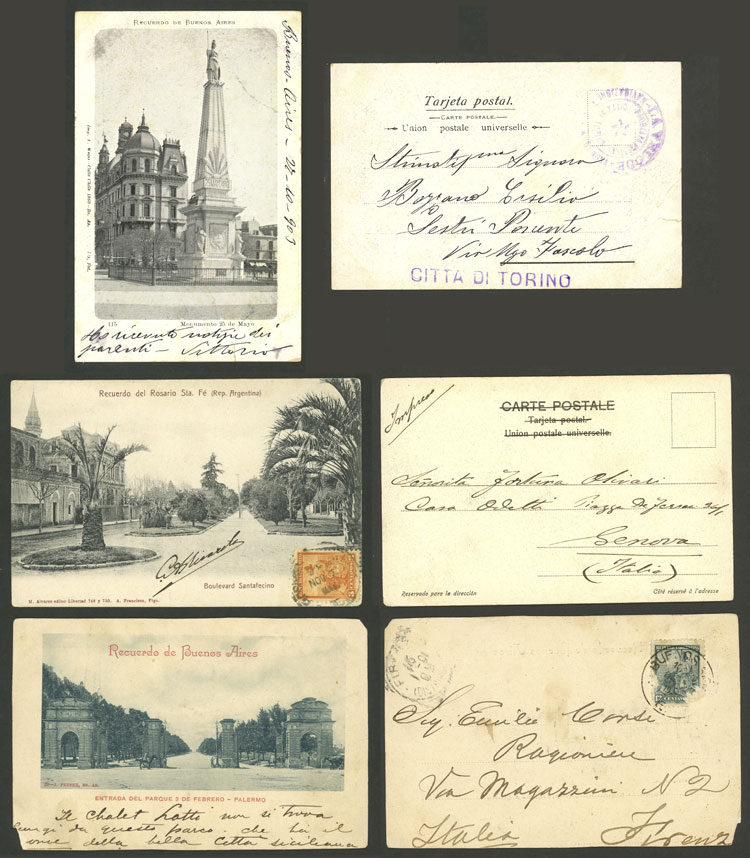 RECUERDO DE BUENOS AIRES
Buenos-Aires - 22-10-903
115 Monumento 25 de Mayo
Ho ricevuto notizie dei
parenti - Vittorio
Tarjeta postal.
CARTE POSTALE.
Union postale universelle
Signora
Sestri Ponente
Via Ugo Foscolo
CITTA DI TORINO
Recuerdo del Rosario Sta. Fé (Rep. Argentina)
Boulevard Santafecino
Impreso
CARTE POSTALE
Tarjeta postal.
Union postale universelle.
Señorita Fortuna Olivari
Casa Odetti Piazza De Ferrari
Genova
(Italia)
Reservado para la dirección
Côté réservé à l'adresse
Recuerdo de Buenos Aires
ENTRADA DEL PARQUE 3 DE FEBRERO - PALERMO
Il chalet Lotto non si trova
lungi da questo parco, che ha il
nome della bella città siciliana
BUENOS
Sig. Emilio Corsi
Ragioniere
Via Magazzini N 2
Italia Firenz